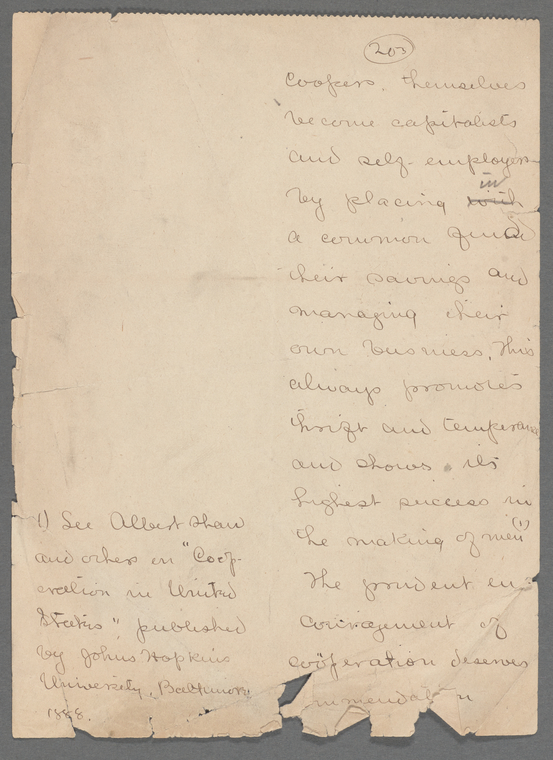 203
Coopers. themselves
become capitalists
and self-employers
by placing with in
a common fund
their savings and
managing their
own business. This
always promotes
thrift and temperance
and shows its
highest success in
the making of men (1)
The prudent en-
couragement of
coöperation deserves
1) See Albert Shaw
and others on "Coöp-
eration in United
States" published
by Johns Hopkins
University, Baltimore,
1888.